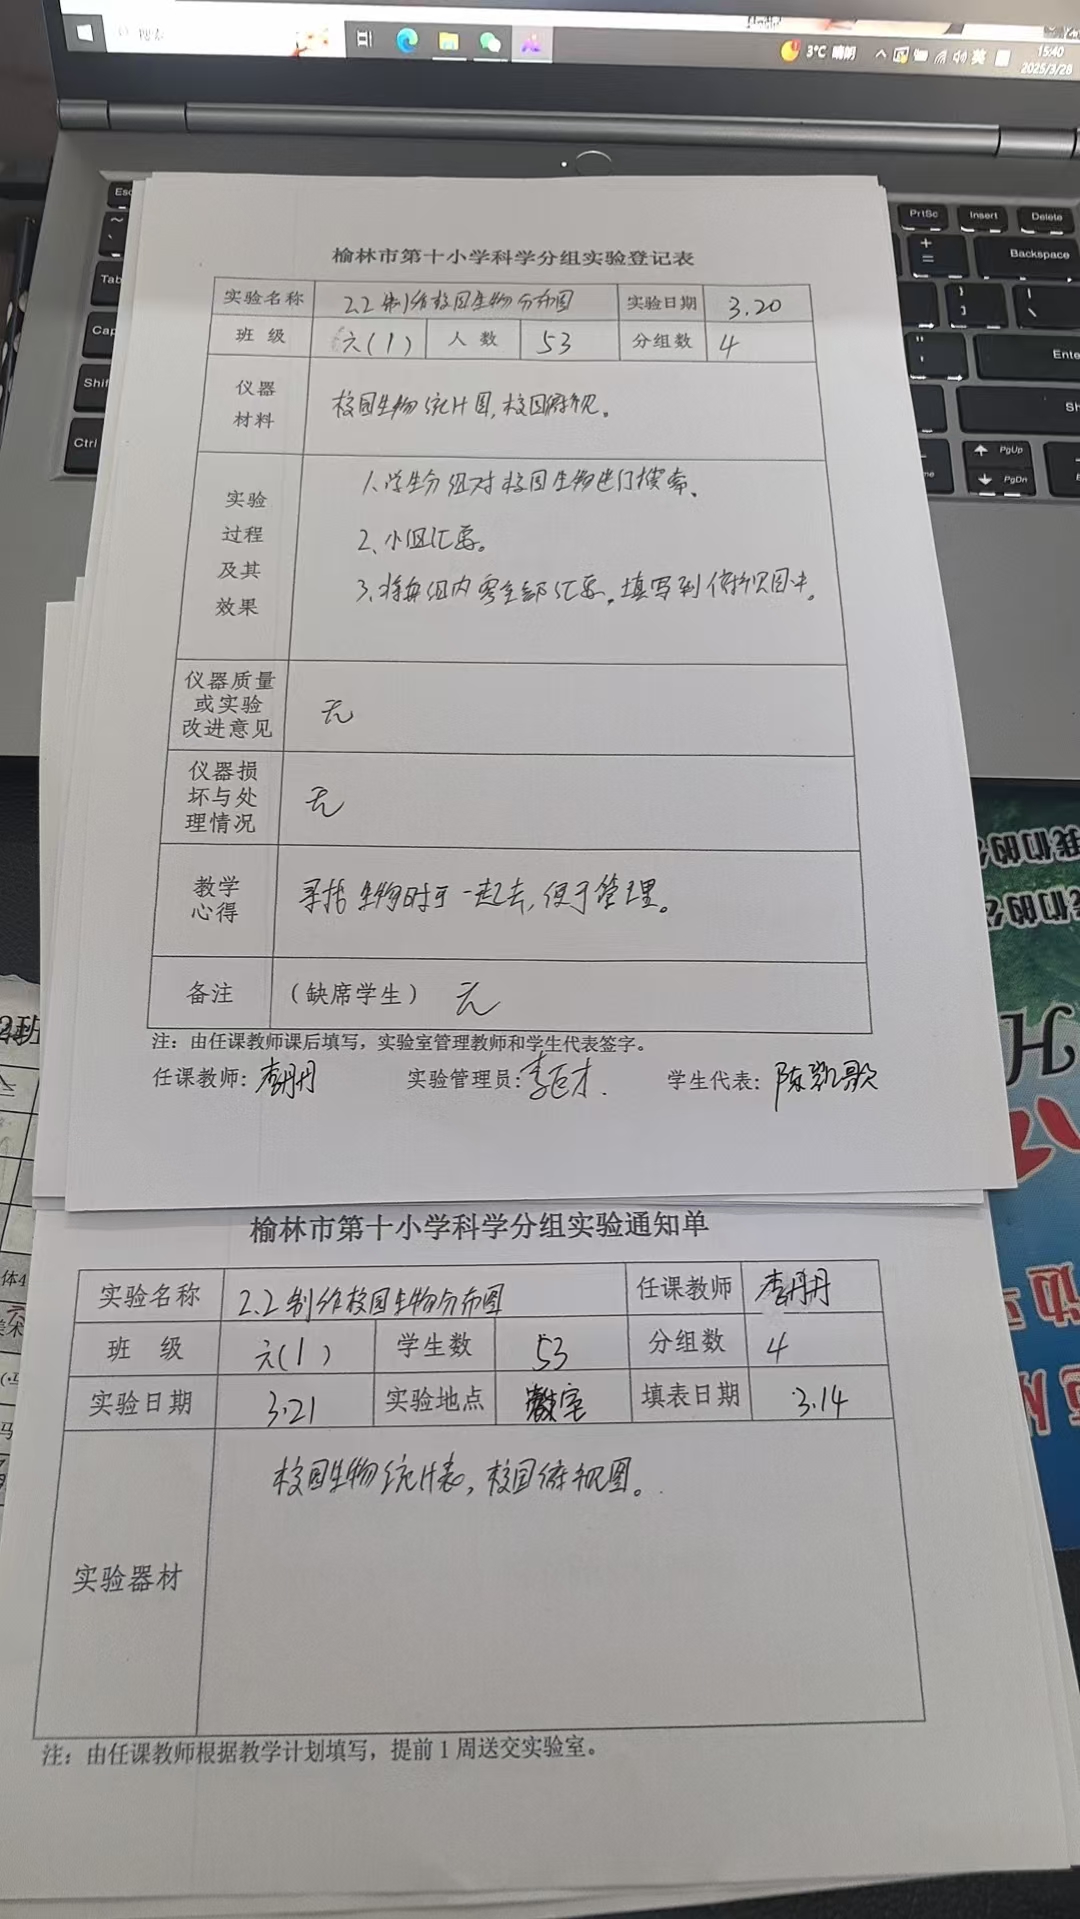 搜索
3°C 晴朗
英
15:40
2025/3/28
Esc
PrtSc
Insert
Delete
Backspace
Tab
Cap
Enter
Shif
Sh
Ctrl
PgUp
PgDn
榆林市第十小学科学分组实验登记表
实验名称 2.2 制作校园生物分布图 实验日期 3.20
班 级 六(1) 人 数 53 分组数 4
仪器材料 校园生物统计图,校园俯视。
实验过程及其效果
1、学生分组对校园生物进行搜索、
2、小组汇要。
3、将每组内容全部汇要。填写到俯视图中。
仪器质量或实验改进意见 无
仪器损坏与处理情况 无
教学心得 寻找生物时可一起去,便于管理。
备注 (缺席学生) 无
注:由任课教师课后填写,实验室管理教师和学生代表签字。
任课教师:李丹丹 实验管理员:李巨才. 学生代表:陈凯歌
榆林市第十小学科学分组实验通知单
实验名称 2.2 制作校园生物分布图 任课教师 李丹丹
班 级 六(1) 学生数 53 分组数 4
实验日期 3.21 实验地点 教室 填表日期 3.14
实验器材 校园生物统计表,校园俯视图。
注:由任课教师根据教学计划填写,提前1周送交实验室。
2班
体4
我们的
我们的